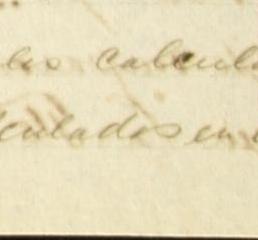 les calcula
lculados en